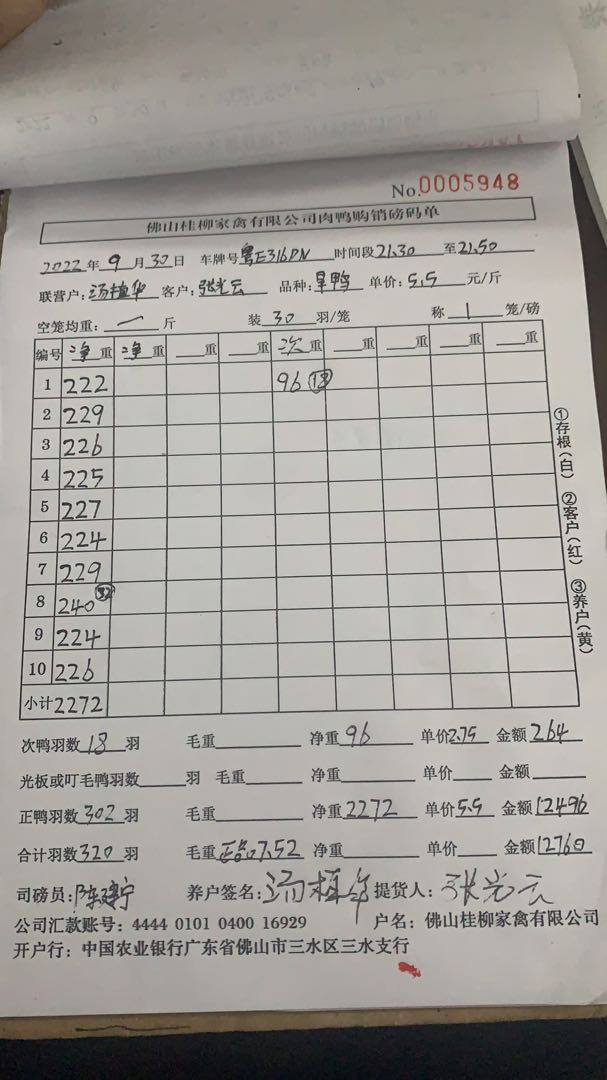 No.0005948
佛山桂柳家禽有限公司肉鸭购销磅码单
2022年9月30日 车牌号粤E316DN 时间段21.30至21.50
联营户:汤植华 客户:张光云 品种:旱鸭 单价:5.5元/斤
空笼均重:一斤 装30羽/笼 称1笼/磅
编号 净重 净重 重 重 次重 重 重 重 重
1 222 96 18
2 229
3 226
4 225
5 227
6 224
7 229
8 240 32
9 224
10 226
小计 2272
①存根(白) ②客户(红) ③养户(黄)
次鸭羽数18羽 毛重 净重96 单价2.75 金额264
光板或叮毛鸭羽数 羽 毛重 净重 单价 金额
正鸭羽数302羽 毛重 净重2272 单价5.5 金额12496
合计羽数320羽 毛重 7.52 净重 单价 金额12760
司磅员:陈建宁 养户签名:汤植华 提货人:张光云
公司汇款账号:4444 0101 0400 16929 户名:佛山桂柳家禽有限公司
开户行:中国农业银行广东省佛山市三水区三水支行